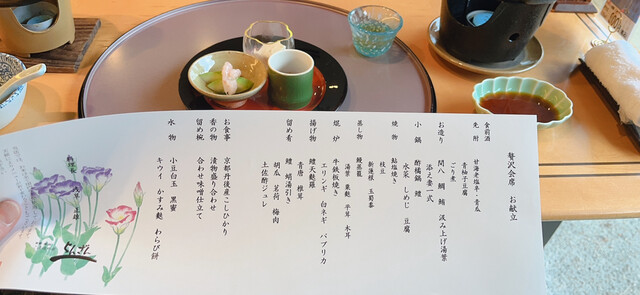 贅沢会席 お献立
食前酒
先附 甘海老塩辛・青瓜
青柚子豆腐
ごり煮
お造り 間八 鯛 鮪 汲み上げ湯葉
添え妻一式
小鍋 酢橘鍋 鱧
水菜 しめじ 豆腐
焼物 鮎塩焼き
枝豆
新蓮根 玉蜀黍
蒸し物 鰻蒸籠
湯葉 粟麩 平茸 木耳
焜炉 牛鉄板焼き
エリンギ 白ネギ パプリカ
揚げ物 鱧天麩羅
青唐 椎茸
留め肴 鱧 蛸湯引き
胡瓜 茗荷 梅肉
土佐酢ジュレ
お食事 京都丹後産こしひかり
香の物 漬物盛り合わせ
留め椀 合わせ味噌仕立て
水物 小豆白玉 黒蜜
キウイ かすみ麩 わらび餅
料理長
らんざん